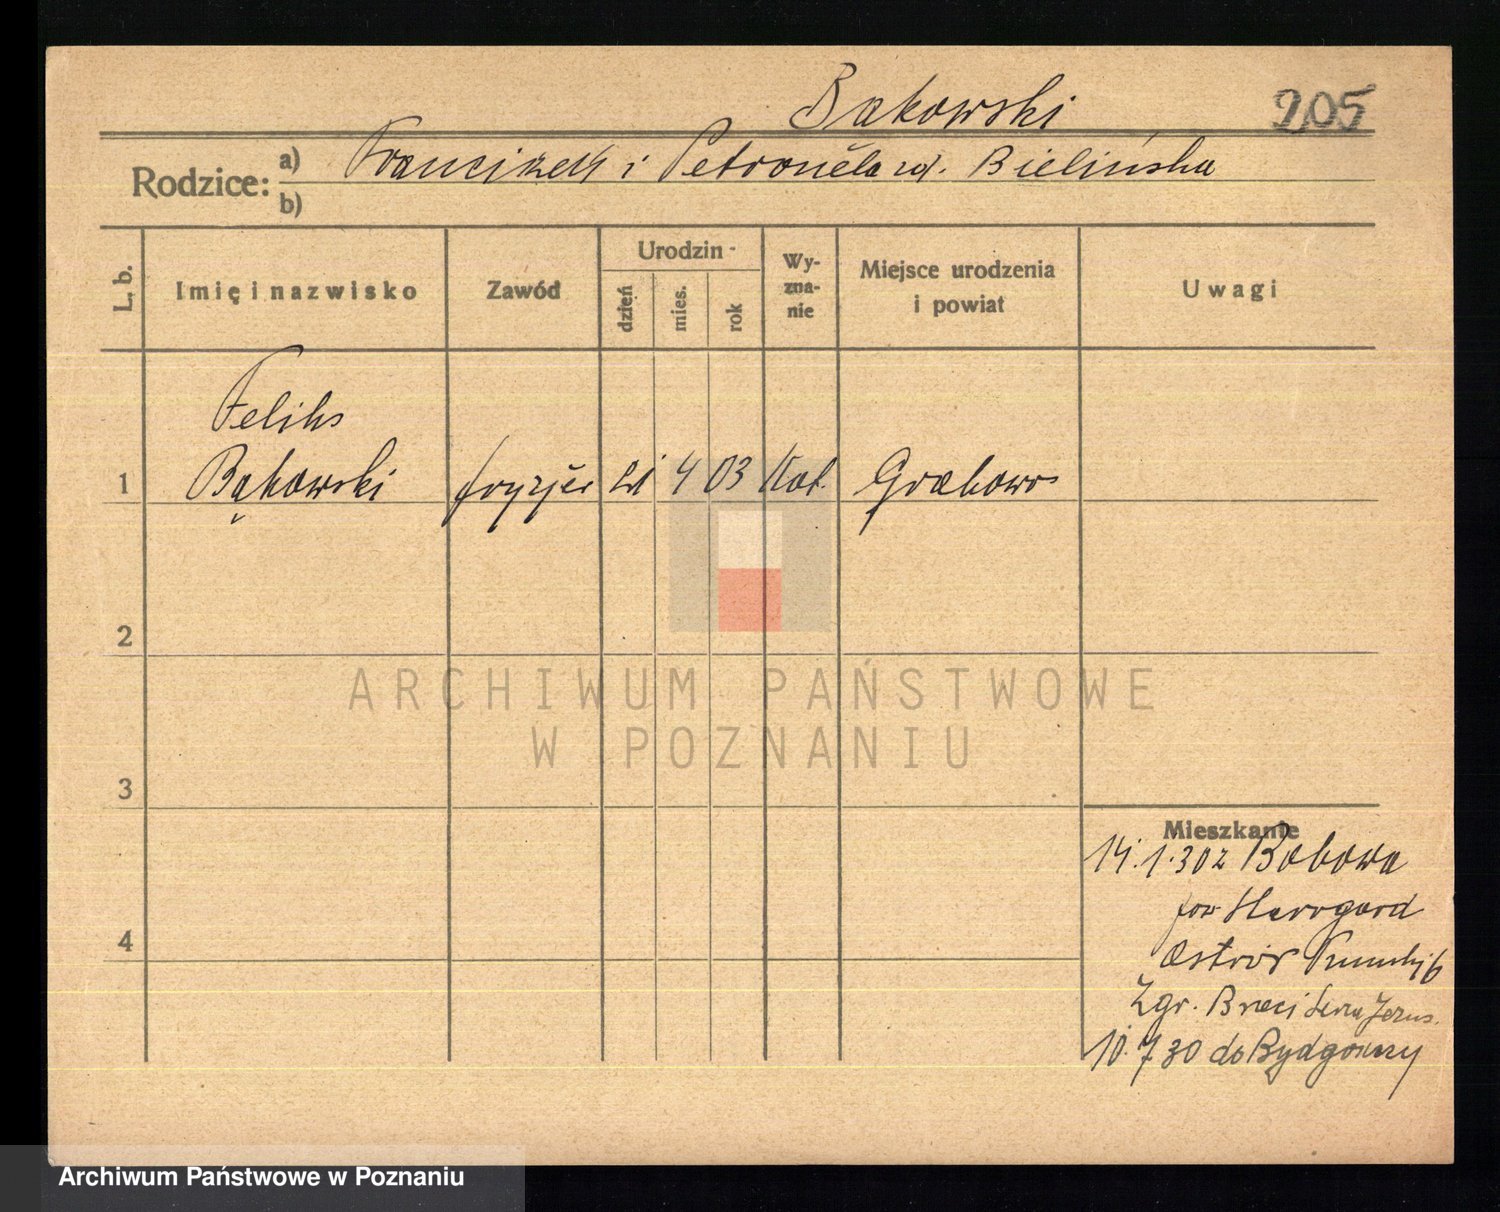 Bąkowski 205
Rodzice: a) Franciszek i Petronela rd. Bielińska
b)
L. b. Imię i nazwisko Zawód Urodzin - dzień mies. rok Wyznanie Miejsce urodzenia i powiat Uwagi
Feliks
1 Bąkowski fryzjer 21 4 03 Kat. Grabowo
2
ARCHIWUM PAŃSTWOWE
W POZNANIU
3
Mieszkanie
14.1.30 z Bobowa
pow Starogard
Ostrów
4
Zgr. Braci Serca Jezus.
10.7 30 do Bydgoszczy
Archiwum Państwowe w Poznaniu